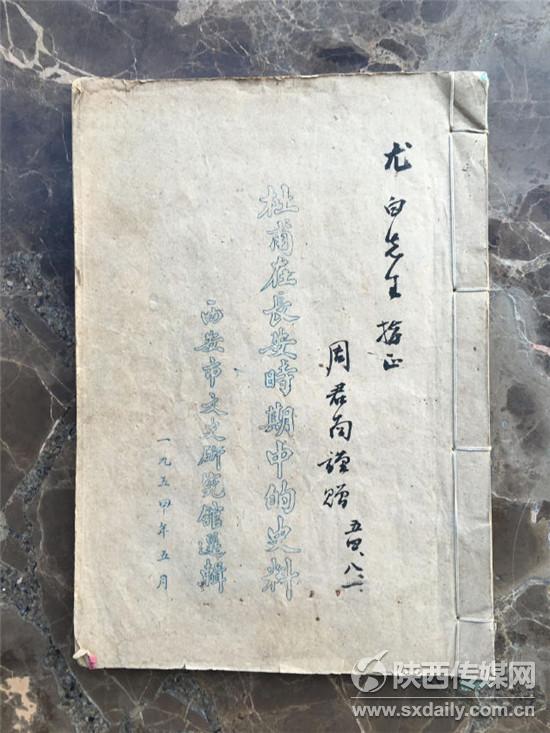 尤白先生指正
周君南謹贈 五四、八、一
杜甫在長安時期中的史料
西安市文史研究館選輯
一九五四年五月
陕西传媒网
www.sxdaily.com.cn